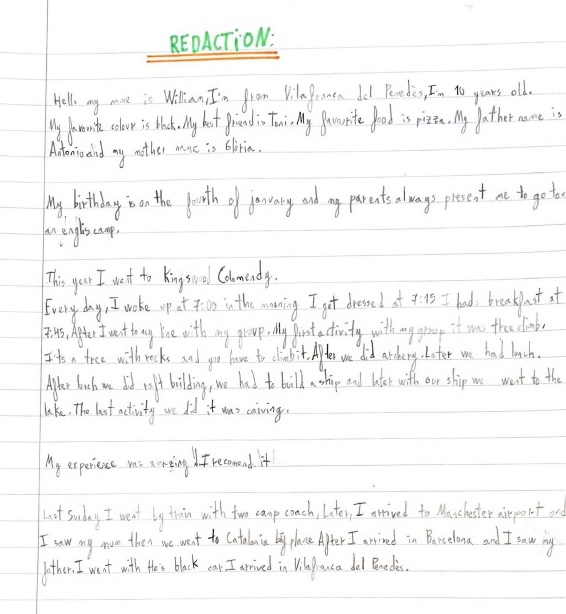 REDACTION:
Hello my name is William, I'm from Vilafranca del Penedès, I'm 10 years old.
My favourite colour is black. My best friend is Toni. My favourite food is pizza. My father name is
Antonio and my mother name is Glòria.
My birthday is on the fourth of january and my parents always present me to go to
an englis camp.
This year I went to Kingswood Colomendy.
Every day, I woke up at 7:00 in the morning I got dressed at 7:15 I had breakfast at
7:45, After I went to my line with my group. My first activity with my group it was tree climb.
It's a tree with rocks and you have to climb it. After we did archery. Later we had lunch.
After lunch we did raft building, we had to build a ship and later with our ship we went to the
lake. The last activity we did it was caiving.
My experience was amazing!! I recomend it!
Last Sunday I went by train with two camp coach, Later, I arrived to Manchester airport and
I saw my mum then we went to Catalonia by plane After I arrived in Barcelona and I saw my
father. I went with He's black car. I arrived in Vilafranca del Penedès.